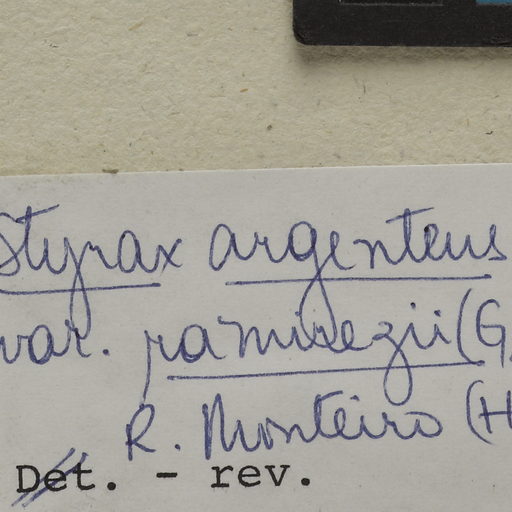 Styrax argenteus
var. ramirezii (G
R. Monteiro (H
Det. - rev.